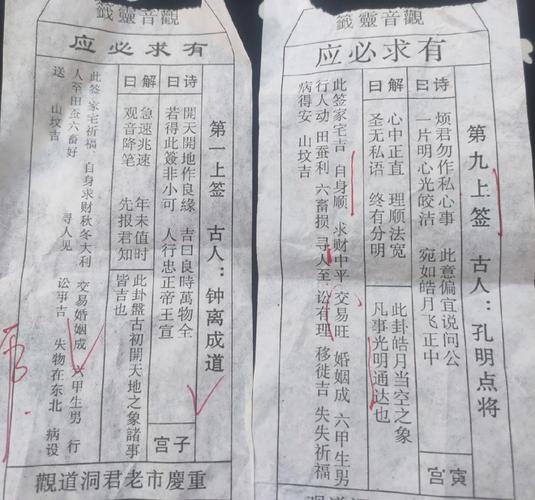 觀音靈籤
有求必应
第一上签 古人：钟离成道
诗曰
開天開地作良緣 吉曰良時萬物全
若得此簽非小可 人行忠正帝王宣
子宫
解曰
急速兆速 年未值时
观音降笔 先报君知
此卦盤古初開天地之象諸事
皆吉也
此签家宅祈福 自身求财秋冬大利 交易婚姻成 六甲生男 行
人至田蚕六畜好 寻人见 讼事吉 失物在东北 病设
送 山坟吉
重慶市老君洞道觀
觀音靈籤
有求必应
第九上签 古人：孔明点将
诗曰
烦君勿作私心事 此意偏宜说问公
一片明心光皎洁 宛如皓月飞正中
寅宫
解曰
心中正直 理顺法宽
圣无私语 终有分明
此卦皓月当空之象
凡事光明通达也
此签家宅吉 自身顺 求财中平 交易旺 婚姻成 六甲生男
行人动 田蚕利 六畜损 寻人至 讼有理 移徙吉 失失祈福
病得安 山坟吉